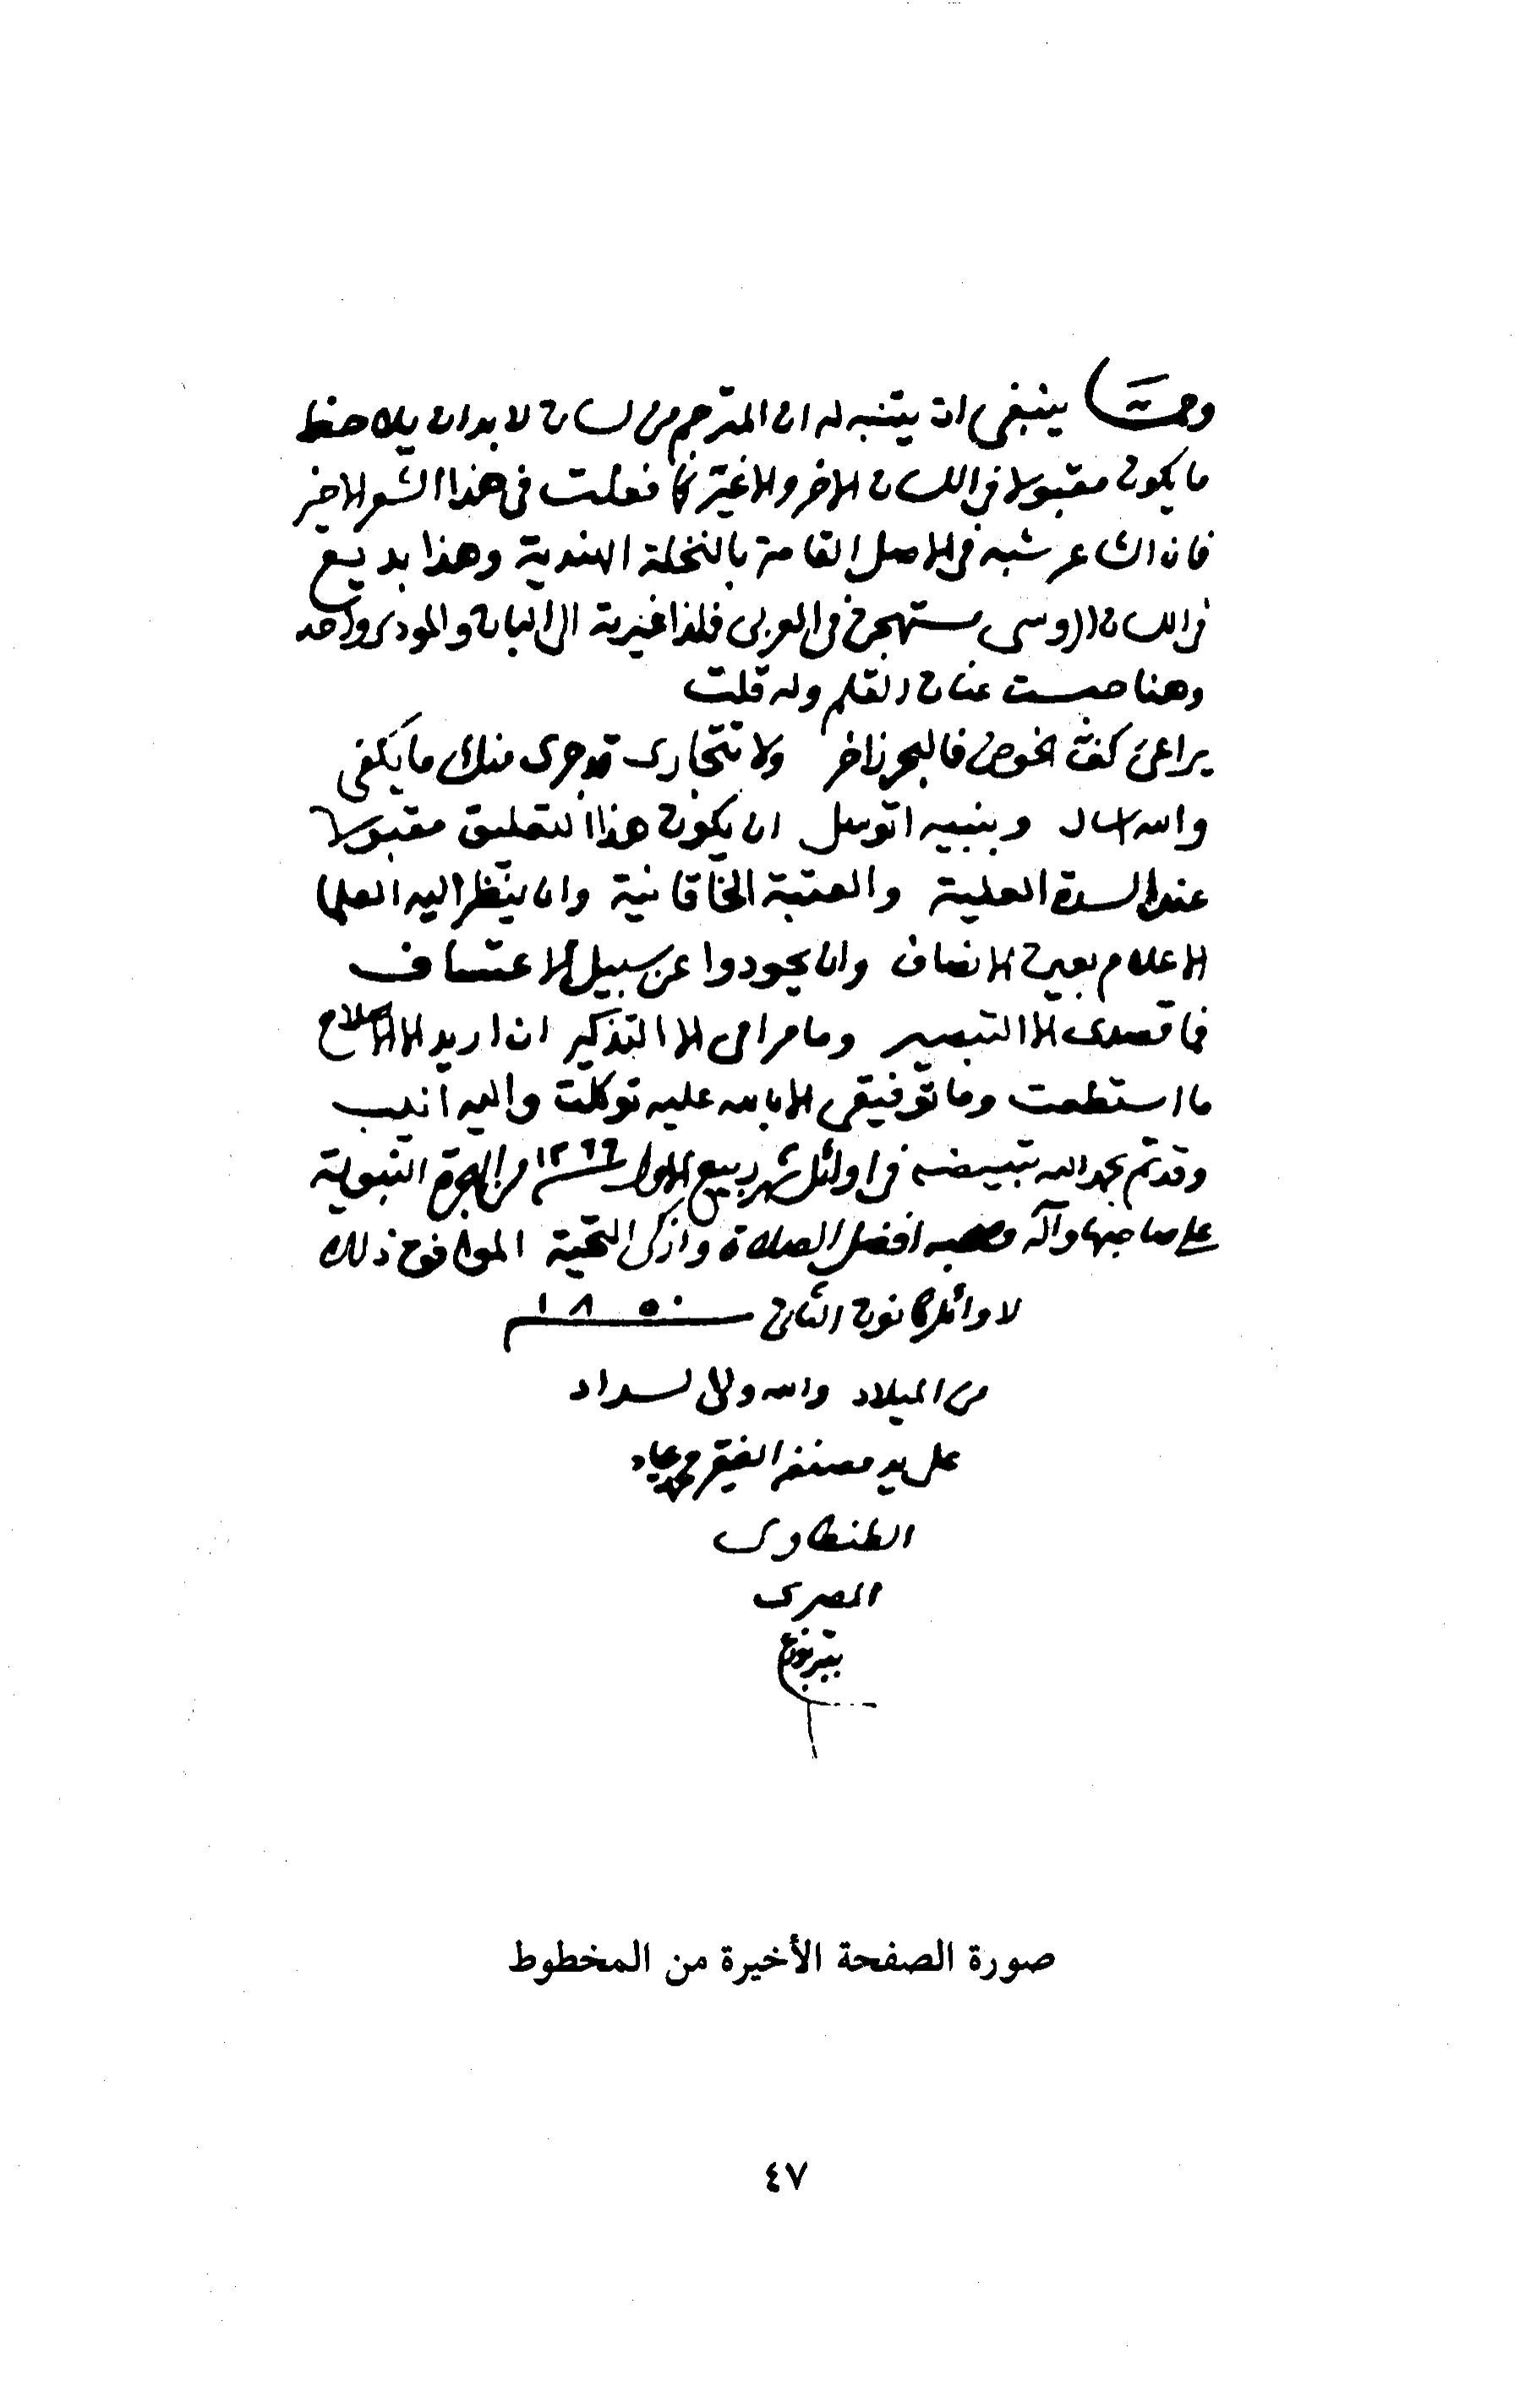 ومما ينبغى ان يتنبه له ان المترجم من لسان لا بد ان يلاحظ
ما يكون مقبولا فى اللسان الاخر والا غيّر كما فعلت فى هذا الشعر الاخير
فان الشاعر شبه فى الاصل القامة بالنخلة الهندية وهذا بديع
فى اللسان الروسى مستهجن فى العربى فلذا غيرته الى البان والمودى واحد
وهنا حبست عنان القلم وله قلت
يراعى كفّ الخوض فالبحر زاخر ولا تتجارى قد جرى منك ما يكفى
والله اسال وبنبيه اتوسل ان يكون هذا التعليق مقبولا
عند السدة العلية والعتبة الخاقانية وان ينظر اليه العلما
الاعلام بعين الانصاف وان يحودوا عن سبيل الاعتساف
فما قصدى الا التبصير وما مرامى الا التذكير ان اريد الا الاصلاح
ما استطعت وما توفيقى الا بالله عليه توكلت واليه انيب
وقد تم بحمد الله تبييضه فى اوائل شهر ربيع الاول سنة ١٢٦٦ من الهجرة النبوية
على صاحبها وآله وصحبه افضل الصلاة وازكى التحية الموافق ذلك
لاوائل كانون الثانى سنة ١٨٥٠
من الميلاد والله ولى السداد
على يد مصنفه الفقير محمد عياد
الطنطاوى
المصرى
صورة الصفحة الأخيرة من المخطوط
٤٧